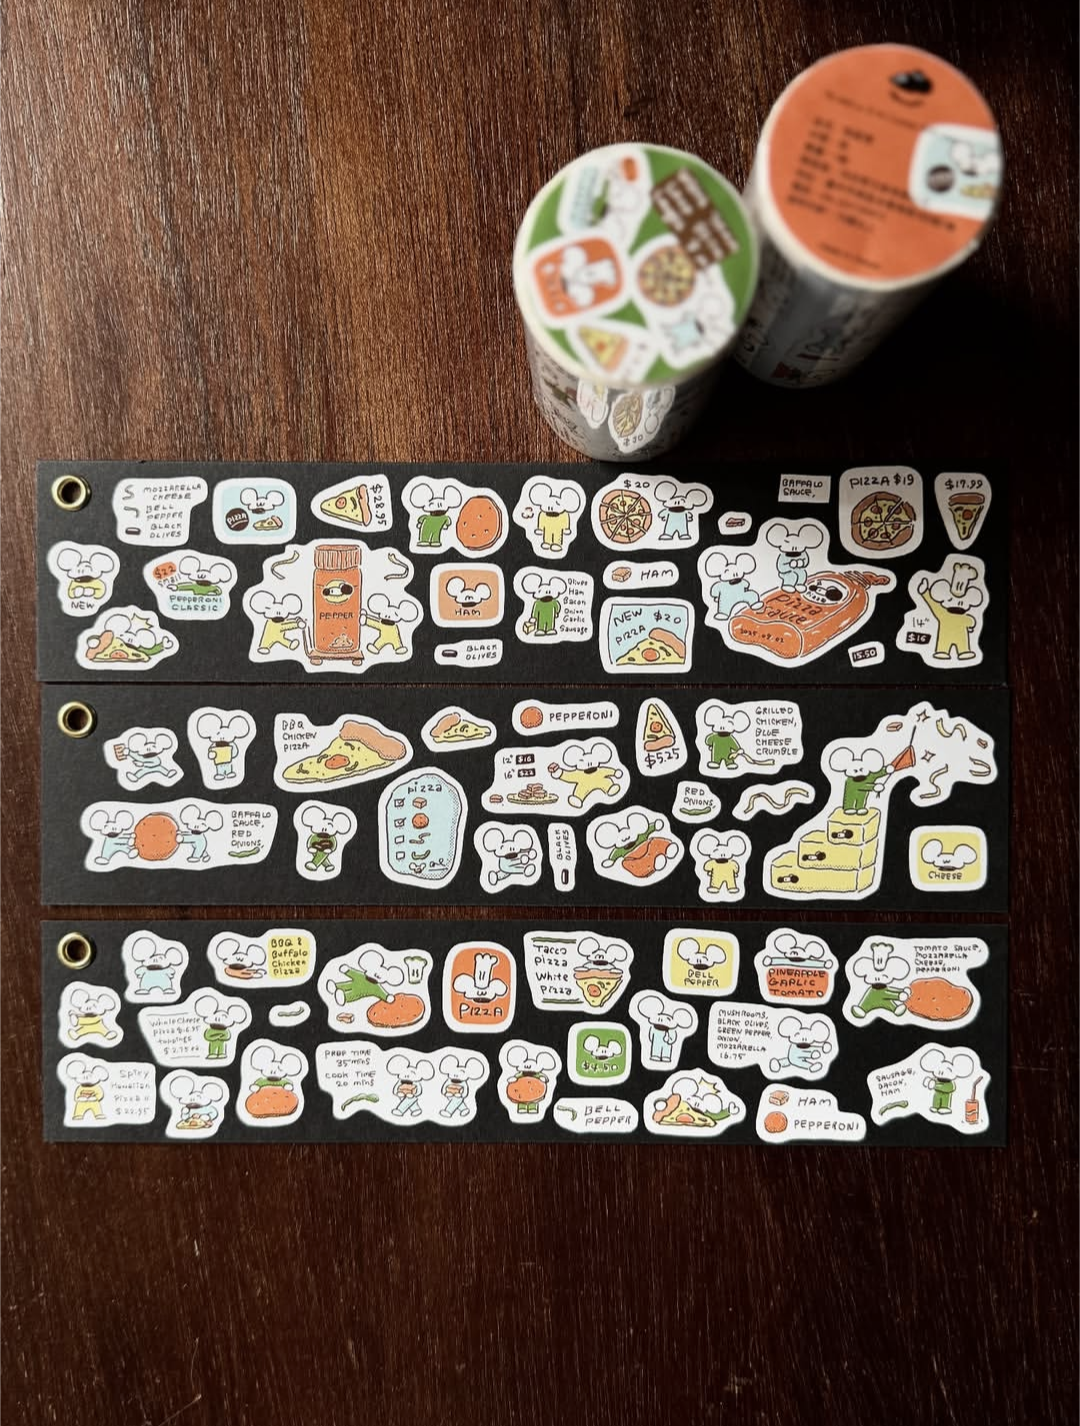 MOZZARELLA
CHEESE
BELL
PEPPER
BLACK
OLIVES
PIZZA
$28.95
$20
BAFFALO
SAUCE,
PIZZA $19
$17.99
NEW
$22
SMALL
PEPPERONI
CLASSIC
PEPPER
HAM
BLACK
OLIVES
Olives
Ham
Bacon
Onion
Garlic
Sausage
HAM
NEW $20
PIZZA
pizza
sauce
15.50
14"
$16
BBQ
CHICKEN
PIZZA
PEPPERONI
12" $16
16" $22
$5.25
GRILLED
CHICKEN,
BLUE
CHEESE
CRUMBLE
BAFFALO
SAUCE,
RED
ONIONS,
pizza
BLACK
OLIVES
RED
ONIONS,
CHEESE
BBQ &
Buffalo
Chicken
Pizza
PIZZA
Taco
pizza
White
Pizza
BELL
PEPPER
PINEAPPLE
GARLIC
TOMATO
TOMATO SAUCE,
MOZZARELLA
CHEESE,
PEPPERONI
Whole Cheese
pizza $16.75
toppings
$2.75 ea.
Spicy
Hawaiian
Pizza
$22.95
PREP TIME
35 mins
COOK TIME
20 mins
$4.50
BELL
PEPPER
MUSHROOMS,
BLACK OLIVES,
GREEN PEPPER,
ONION,
MOZZARELLA
16.75
HAM
PEPPERONI
SAUSAGE,
BACON,
HAM
$30